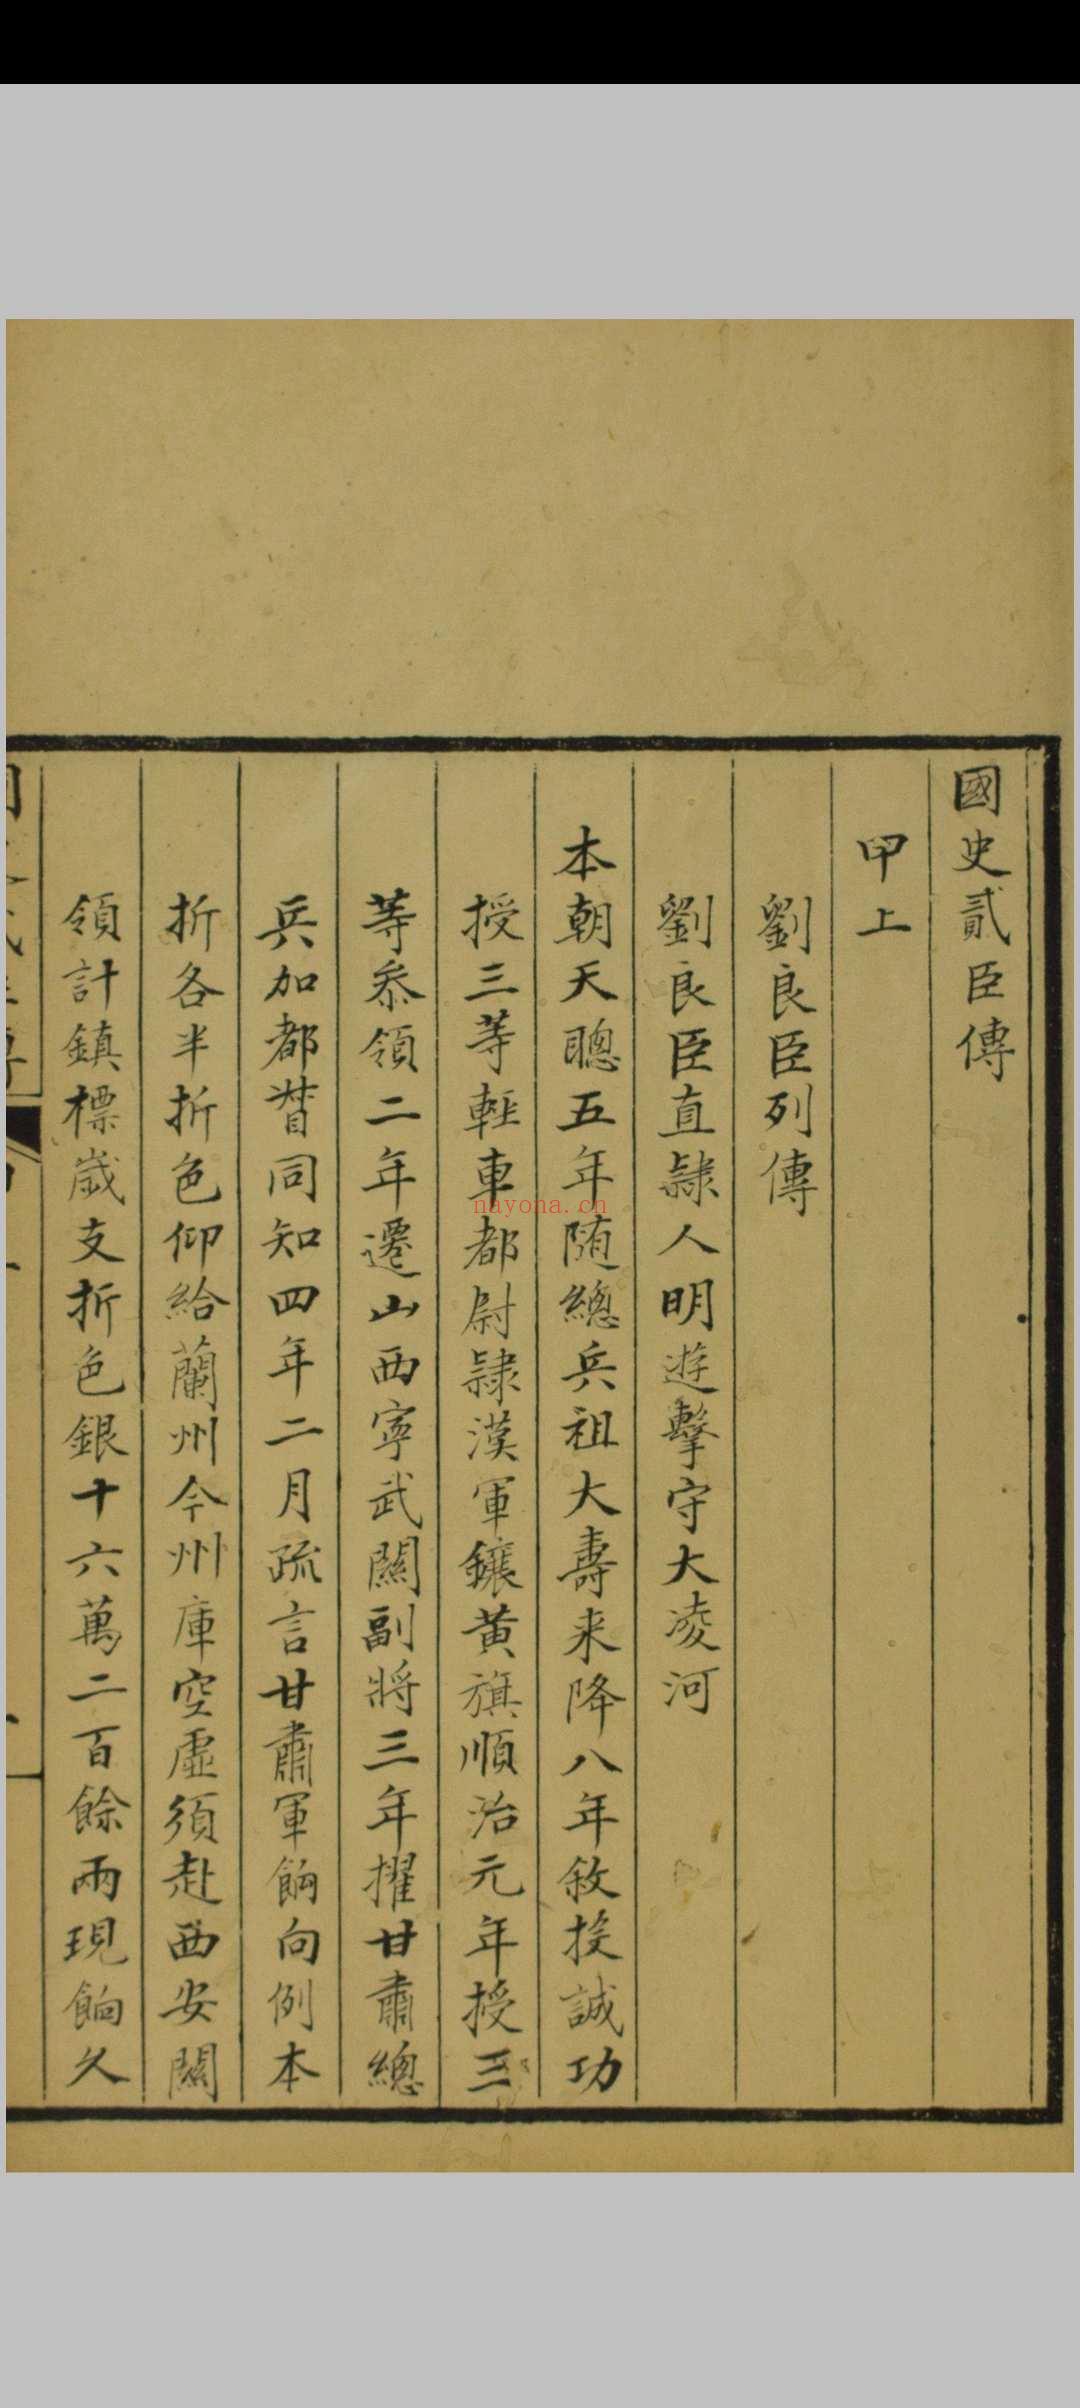 國史貳臣傳
甲上
劉良臣列傳
劉良臣直隸人明遊擊守大凌河
本朝天聰五年随總兵祖大壽来降八年敘投誠功
授三等輕車都尉隷漢軍鑲黄旗順治元年授三
等叅領二年遷山西寧武關副將三年擢甘肅總
兵加都督同知四年二月疏言甘肅軍餉向例本
折各半折色仰給蘭州今州庫空虛須赴西安關
領計鎮標歲支折色銀十六萬二百餘兩現餉久
nayona.cn